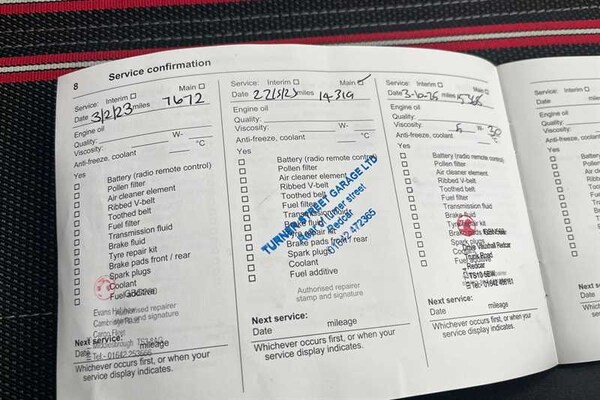 8 Service confirmation
Service: Interim Main
Date 3/2/23 miles 7672
Engine oil
Quality:
Viscosity: W-
Anti-freeze, coolant °C
Yes
Battery (radio remote control)
Pollen filter
Air cleaner element
Ribbed V-belt
Toothed belt
Fuel filter
Transmission fluid
Brake fluid
Tyre repair kit
Brake pads front / rear
Spark plugs
Coolant
Fuel additive
Authorised repairer
stamp and signature
Evans Halshaw
Cambridge Road
Cargo Fleet
Middlesbrough
Tel - 01642 253666
Next service:
Date mileage
Whichever occurs first, or when your
service display indicates.
Service: Interim Main
Date 22/5/23 miles 14319
Engine oil
Quality:
Viscosity: W-
Anti-freeze, coolant °C
Yes
Battery (radio remote control)
Pollen filter
Air cleaner element
Ribbed V-belt
Toothed belt
Fuel filter
Transmission fluid
Brake fluid
Tyre repair kit
Brake pads front / rear
Spark plugs
Coolant
Fuel additive
TURNER STREET GARAGE LTD
Rear of turner street
Redcar
01642 472365
Authorised repairer
stamp and signature
Next service:
Date mileage
Whichever occurs first, or when your
service display indicates.
Service: Interim Main
Date miles
Engine oil
Quality:
Viscosity: 5 W- 30
Anti-freeze, coolant °C
Yes
Battery (radio remote control)
Pollen filter
Air cleaner element
Ribbed V-belt
Toothed belt
Fuel filter
Transmission fluid
Brake fluid
Tyre repair kit
Brake pads
Spark plugs
Coolant
Fuel additive
Vauxhall Redcar
Trunk Road
Redcar
Next service:
Date mileage
Whichever occurs first, or when your
service display indicates.
Service:
Date
Engine oil
Quality:
Viscosity:
Anti-freeze,
Yes
Next
Date
Whichever
service